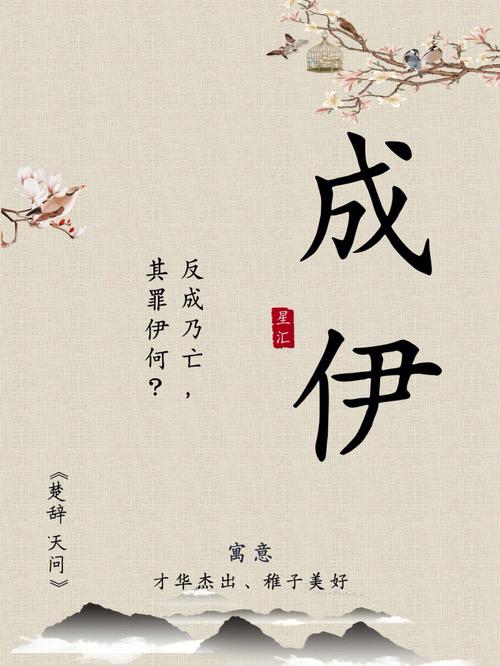 成伊
星汇
反成乃亡，
其罪伊何？
《楚辞·天问》
寓意
才华杰出、稚子美好